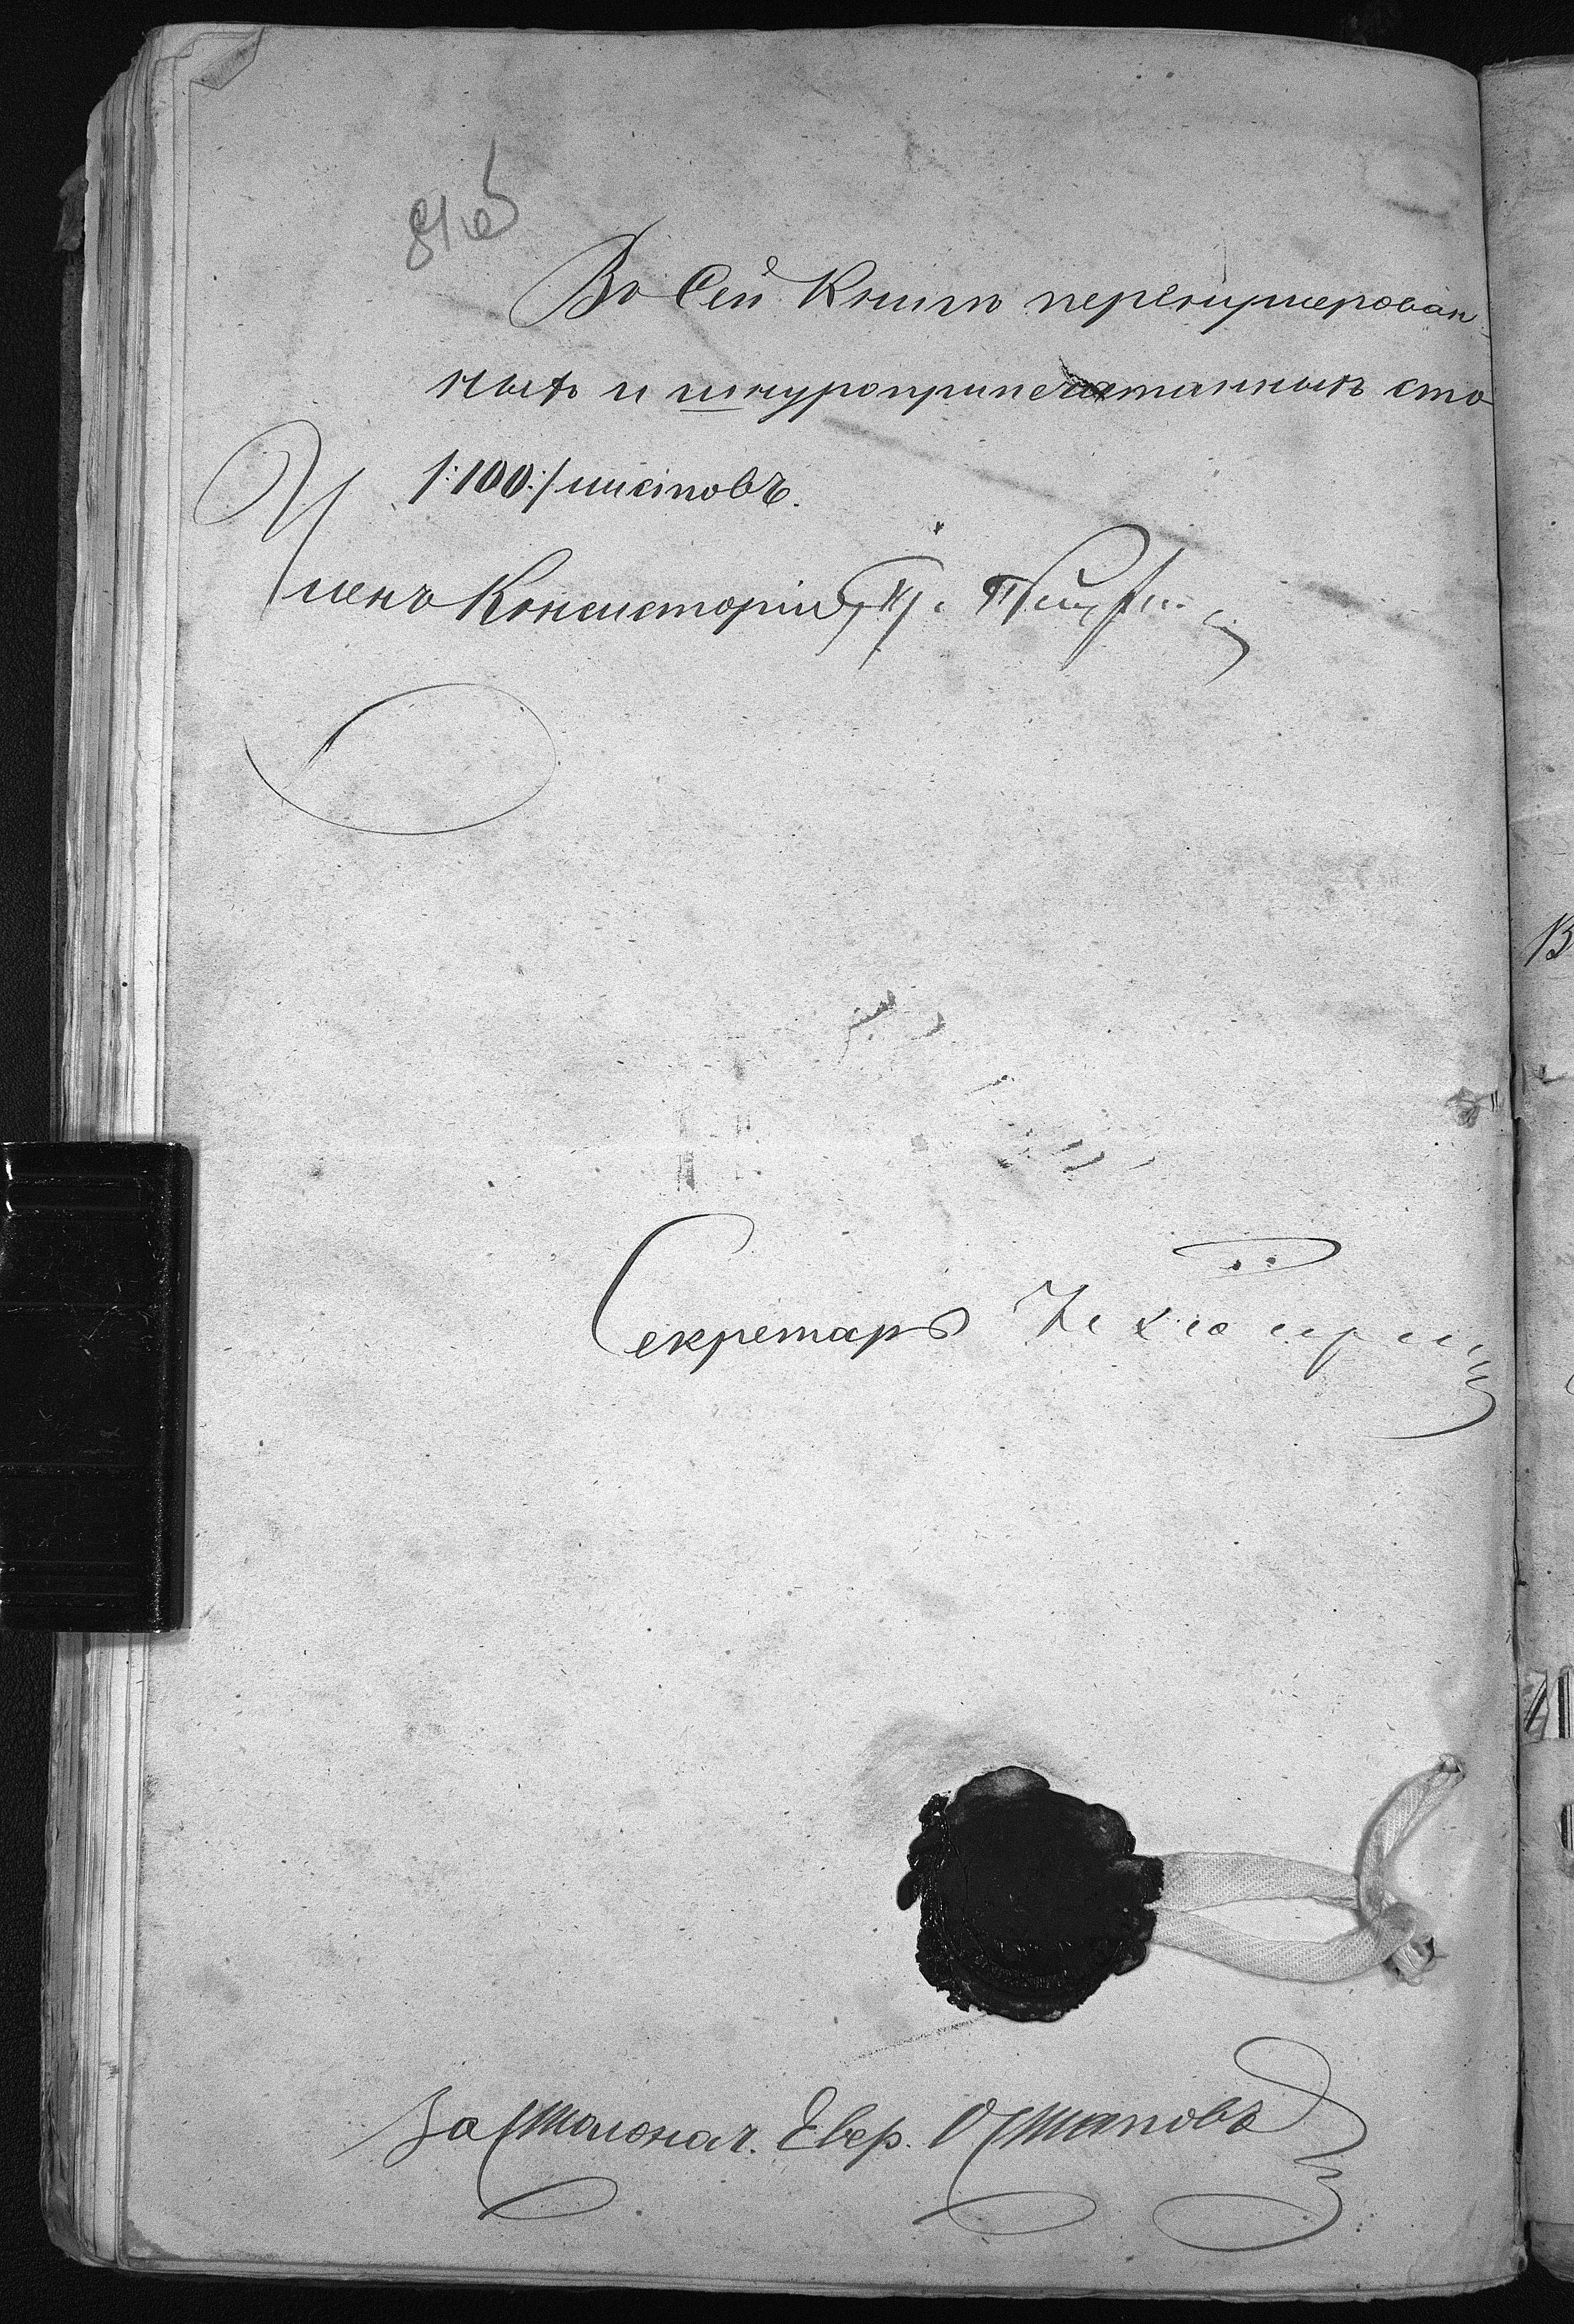 Во Сей Книгѣ перенумерован-
ныхъ и шнуроприпечатанныхъ сто
/:100:/ листовъ.
Членъ Консисторіи, Пр.
Секретарь
За Столонач. Евер. Остаповъ